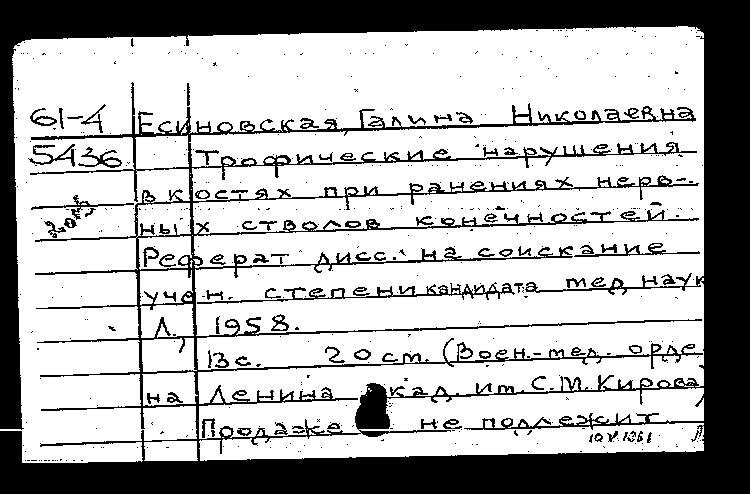 61-4 Есиновская, Галина Николаевна
5436 Трофические нарушения
в костях при ранениях нерв-
ных стволов конечностей.
Реферат дисс. на соискание
учен. степени кандидата мед. наук
Л., 1958.
13 с. 20 см. (Воен.-мед. орде
на Ленина акад. им. С.М. Кирова)
Продаже не подлежит